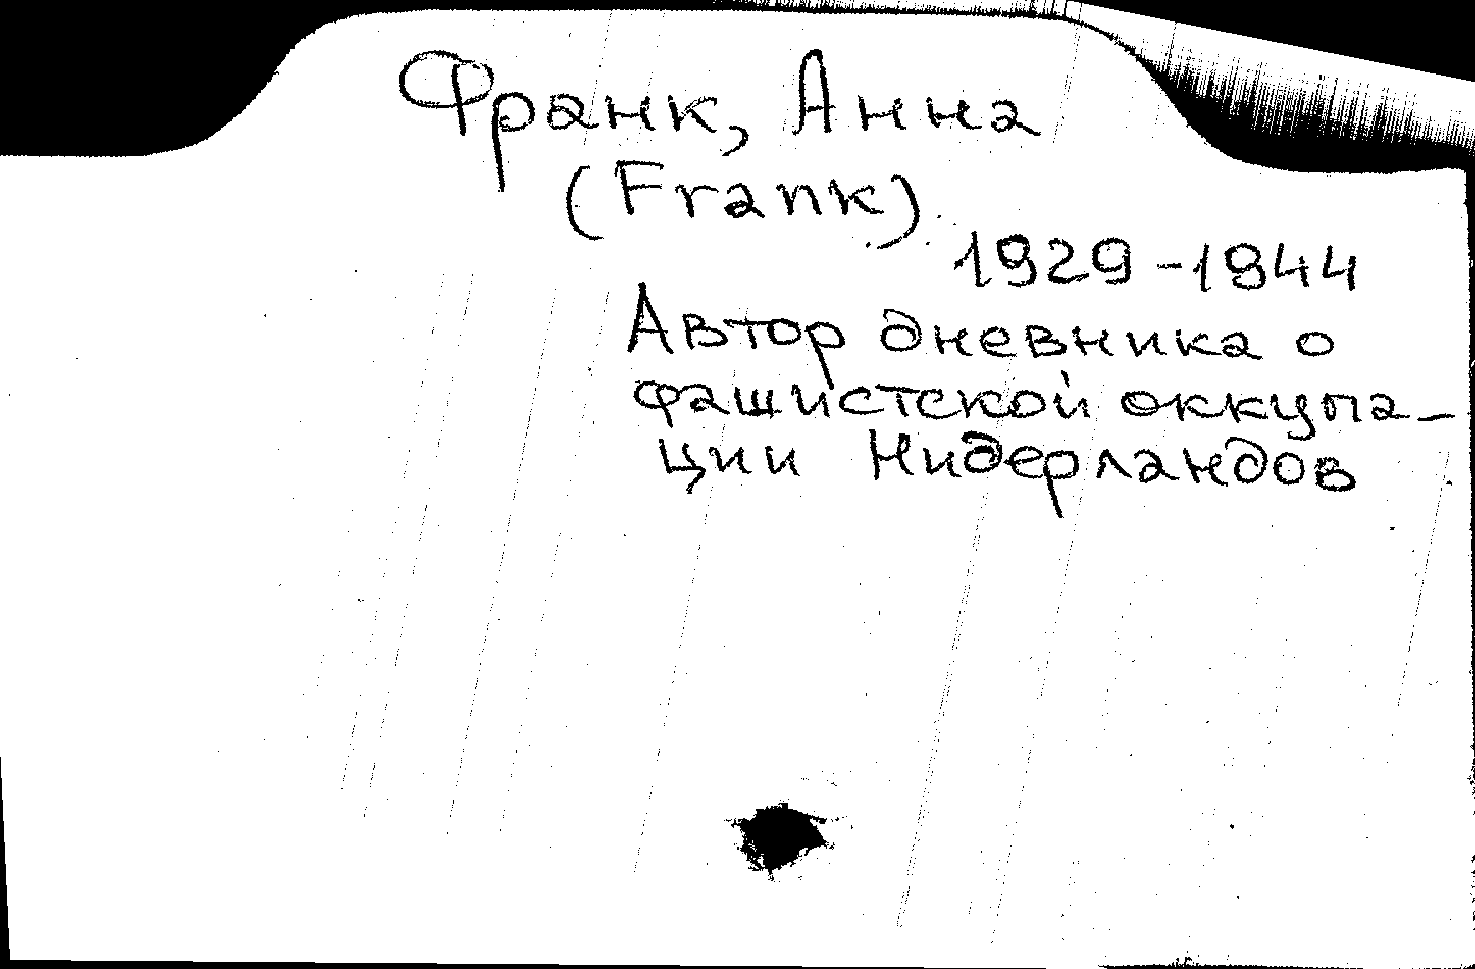 Франк, Анна
(Frank)
1929-1944
Автор дневника о
фашистской оккупа-
ции Нидерландов